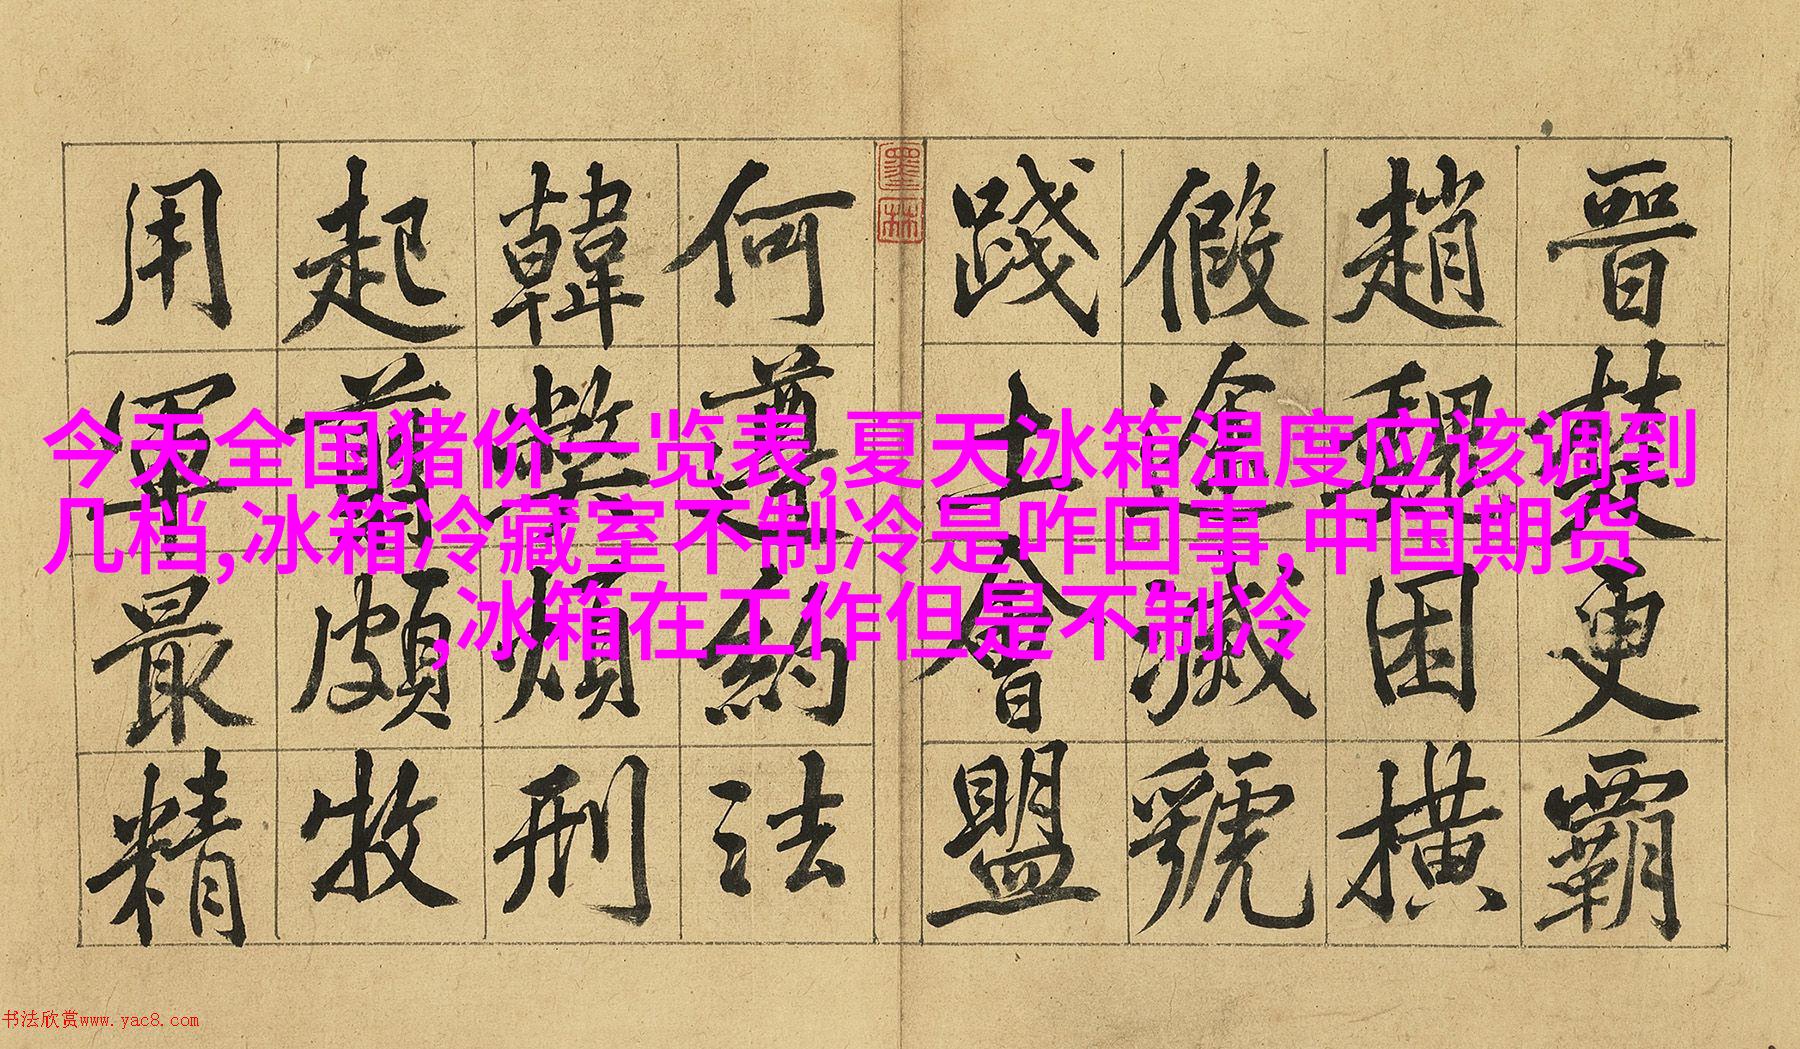 晉楚更霸
趙魏困橫
假途滅虢
踐土會盟
墨林
何遵約法
韓弊煩刑
起翦頗牧
用軍最精
今天全国猪价一览表,夏天冰箱温度应该调到
几档,冰箱冷藏室不制冷是咋回事,中国期货
,冰箱在工作但是不制冷
书法欣赏www.yac8.com